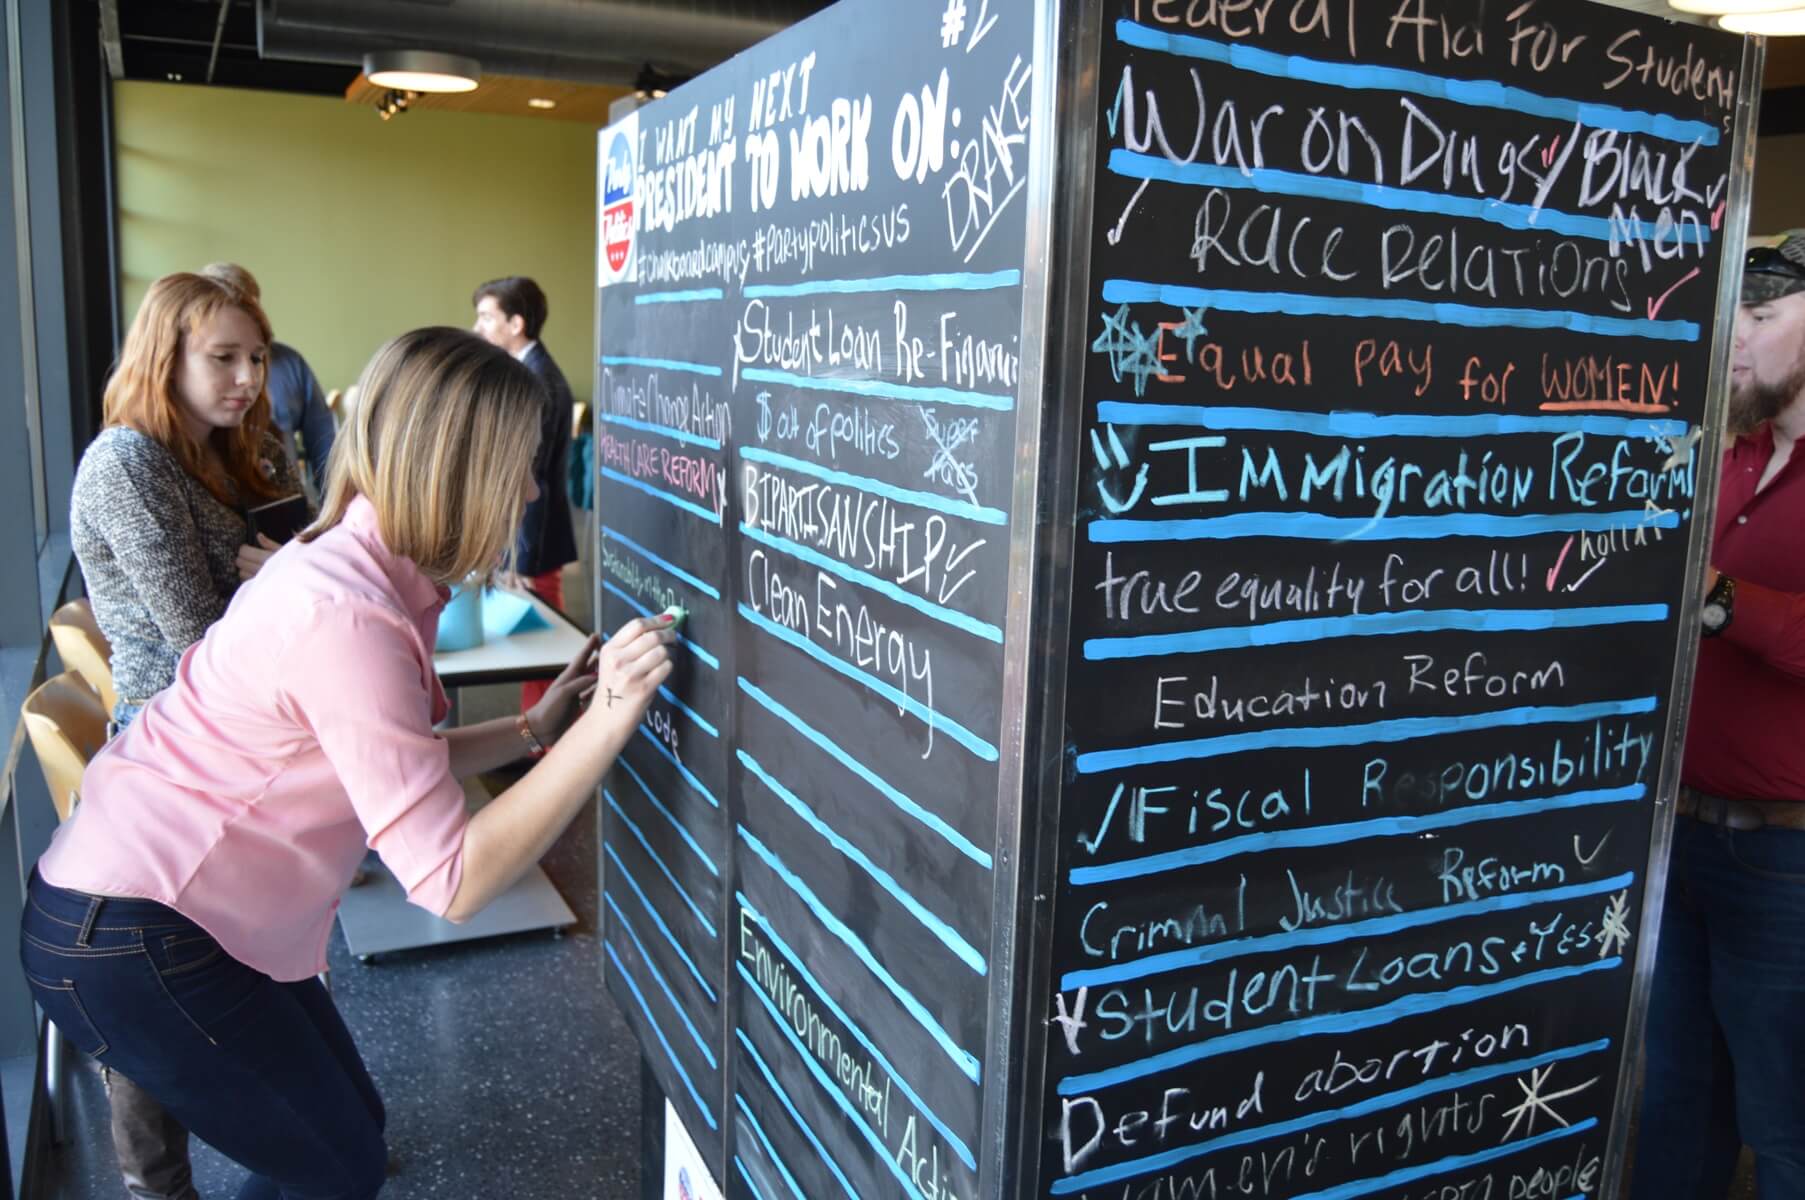 #2
I WANT MY NEXT
PRESIDENT TO WORK ON:
DRAKE
Party
Politics
#chalkboardcampus #partypoliticsus
Climate Change Action
HEALTH CARE REFORM
Sustainability in the
code
Student Loan Re-Financi
$ out of politics
Super
Pacs
BIPARTISANSHIP
Clean Energy
Environmental Acti
Federal Aid For Students
War on Drugs/Black
Men
Race Relations
Equal pay for WOMEN!
IMMigration Reform!
true equality for all!
holla
Education Reform
Fiscal Responsibility
Criminal Justice Reform
Student Loans YES
Defund abortion
women's rights
people